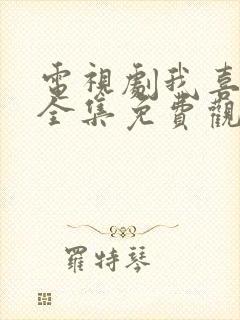 電視劇我喜
全集免費觀
羅特琴